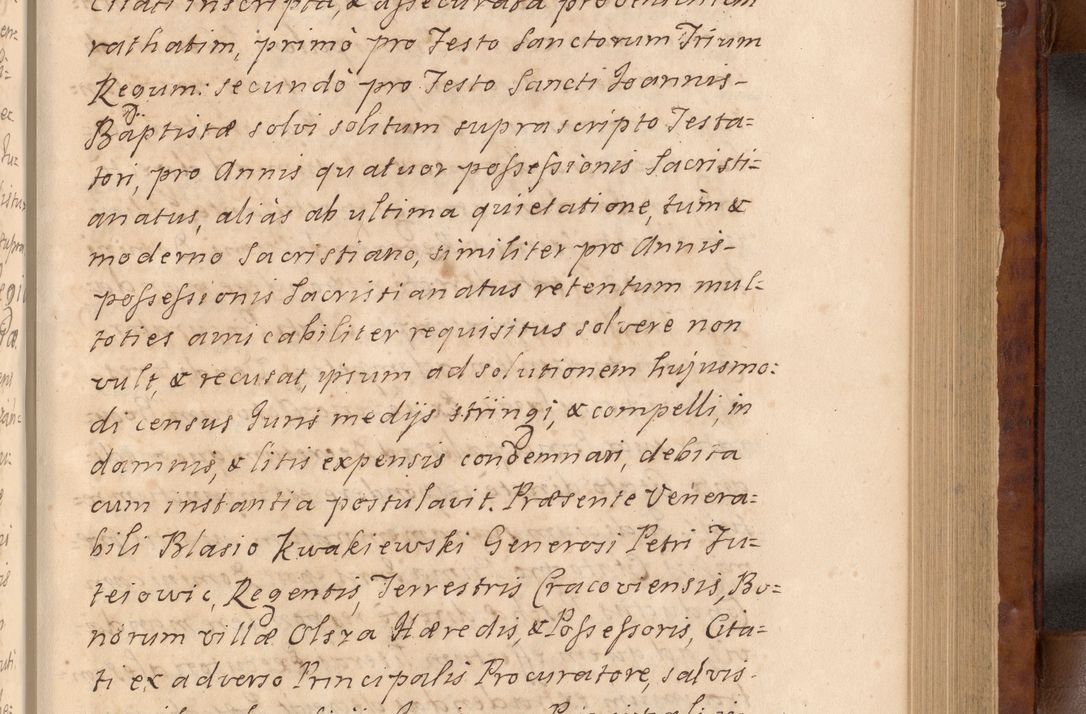 Citati inscripta, & assecurata proventuum
rathatim, primò pro Festo Sanctorum Trium
Regum: secundò pro Festo Sancti Joannis-
Baptistæ solvi solitum suprascripto Testa=
tori, pro Annis quatuor possessionis Sacristi=
anatus, aliàs ab ultima quietatione, tùm &
moderno Sacristiano, similiter pro Annis-
possessionis Sacristianatus retentum mul=
toties amicabiliter requisitus solvere non
vult, & recusat, ipsum ad solutionem hujusmo=
di census Juris medijs stringi, & compelli, in
damnis, & litis expensis condemnari, debita
cum instantia postulavit. Præsente Venera=
bili Blasio Kwakiewski Generosi Petri Ju=
teiowic, Regentis, Terrestris Cracoviensis, Bo=
norum villæ Olsza Hæredis, & Possessoris, Cita=
ti ex adverso Principalis Procuratore, salvis-